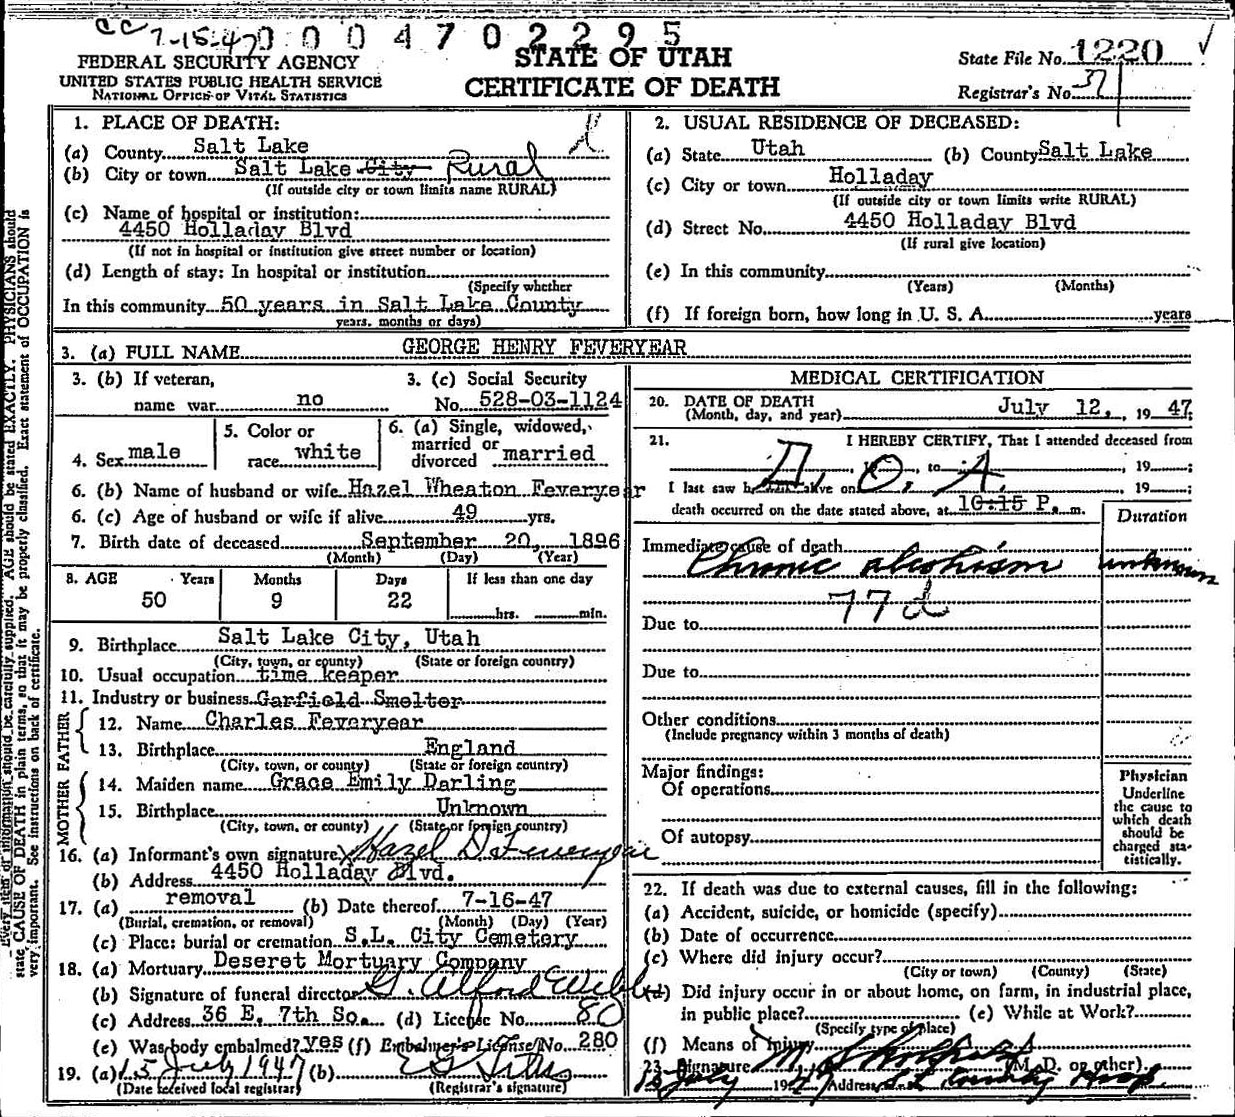 CC 7-15-47 0004702295
FEDERAL SECURITY AGENCY
UNITED STATES PUBLIC HEALTH SERVICE
NATIONAL OFFICE OF VITAL STATISTICS
STATE OF UTAH
CERTIFICATE OF DEATH
State File No. 1220
Registrar's No. 37
1. PLACE OF DEATH:
(a) County Salt Lake
(b) City or town Salt Lake City Rural
(If outside city or town limits name RURAL)
(c) Name of hospital or institution:
4450 Holladay Blvd
(If not in hospital or institution give street number or location)
(d) Length of stay: In hospital or institution
(Specify whether
In this community 50 years in Salt Lake County
years, months or days)
2. USUAL RESIDENCE OF DECEASED:
(a) State Utah (b) County Salt Lake
(c) City or town Holladay
(If outside city or town limits write RURAL)
(d) Street No. 4450 Holladay Blvd
(If rural give location)
(e) In this community
(Years) (Months)
(f) If foreign born, how long in U. S. A. years
3. (a) FULL NAME GEORGE HENRY FEVERYEAR
3. (b) If veteran,
name war no
3. (c) Social Security
No. 528-03-1124
4. Sex male
5. Color or
race white
6. (a) Single, widowed,
married or
divorced married
6. (b) Name of husband or wife Hazel Wheaton Feveryear
6. (c) Age of husband or wife if alive 49 yrs.
7. Birth date of deceased September 20, 1896
(Month) (Day) (Year)
8. AGE Years Months Days If less than one day
50 9 22 hrs. min.
9. Birthplace Salt Lake City, Utah
(City, town, or county) (State or foreign country)
10. Usual occupation time keeper
11. Industry or business Garfield Smelter
FATHER
12. Name Charles Feveryear
13. Birthplace England
(City, town, or county) (State or foreign country)
MOTHER
14. Maiden name Grace Emily Darling
15. Birthplace Unknown
(City, town, or county) (State or foreign country)
16. (a) Informant's own signature Hazel D Feveryear
(b) Address 4450 Holladay Blvd.
17. (a) removal (b) Date thereof 7-16-47
(Burial, cremation, or removal) (Month) (Day) (Year)
(c) Place: burial or cremation S.L. City Cemetery
18. (a) Mortuary Deseret Mortuary Company
(b) Signature of funeral director G. Alford Webb
(c) Address 36 E. 7th So. (d) License No. 80
(e) Was body embalmed? yes (f) Embalmer's License No. 280
19. (a) 15 July 1947 (b)
(Date received local registrar) (Registrar's signature)
MEDICAL CERTIFICATION
20. DATE OF DEATH
(Month, day, and year) July 12, 19 47
21. I HEREBY CERTIFY, That I attended deceased from
D. O. A. , 19 , to , 19 ;
I last saw h alive on , 19 ;
death occurred on the date stated above, at 10:15 P. m.
Duration
Immediate cause of death
Chronic alcoholism unknown
77d
Due to
Due to
Other conditions
(Include pregnancy within 3 months of death)
Major findings:
Of operations
Of autopsy
Physician
Underline
the cause to
which death
should be
charged sta-
tistically.
22. If death was due to external causes, fill in the following:
(a) Accident, suicide, or homicide (specify)
(b) Date of occurrence
(c) Where did injury occur?
(City or town) (County) (State)
(d) Did injury occur in or about home, on farm, in industrial place,
in public place? (e) While at Work?
(Specify type of place)
(f) Means of Injury
23. Signature (M. D. or other)
July 1947 Address S L County Hosp.
Every item of information should be carefully supplied. AGE should be stated EXACTLY. PHYSICIANS should
state CAUSE OF DEATH in plain terms, so that it may be properly classified. Exact statement of OCCUPATION is
very important. See instructions on back of certificate.